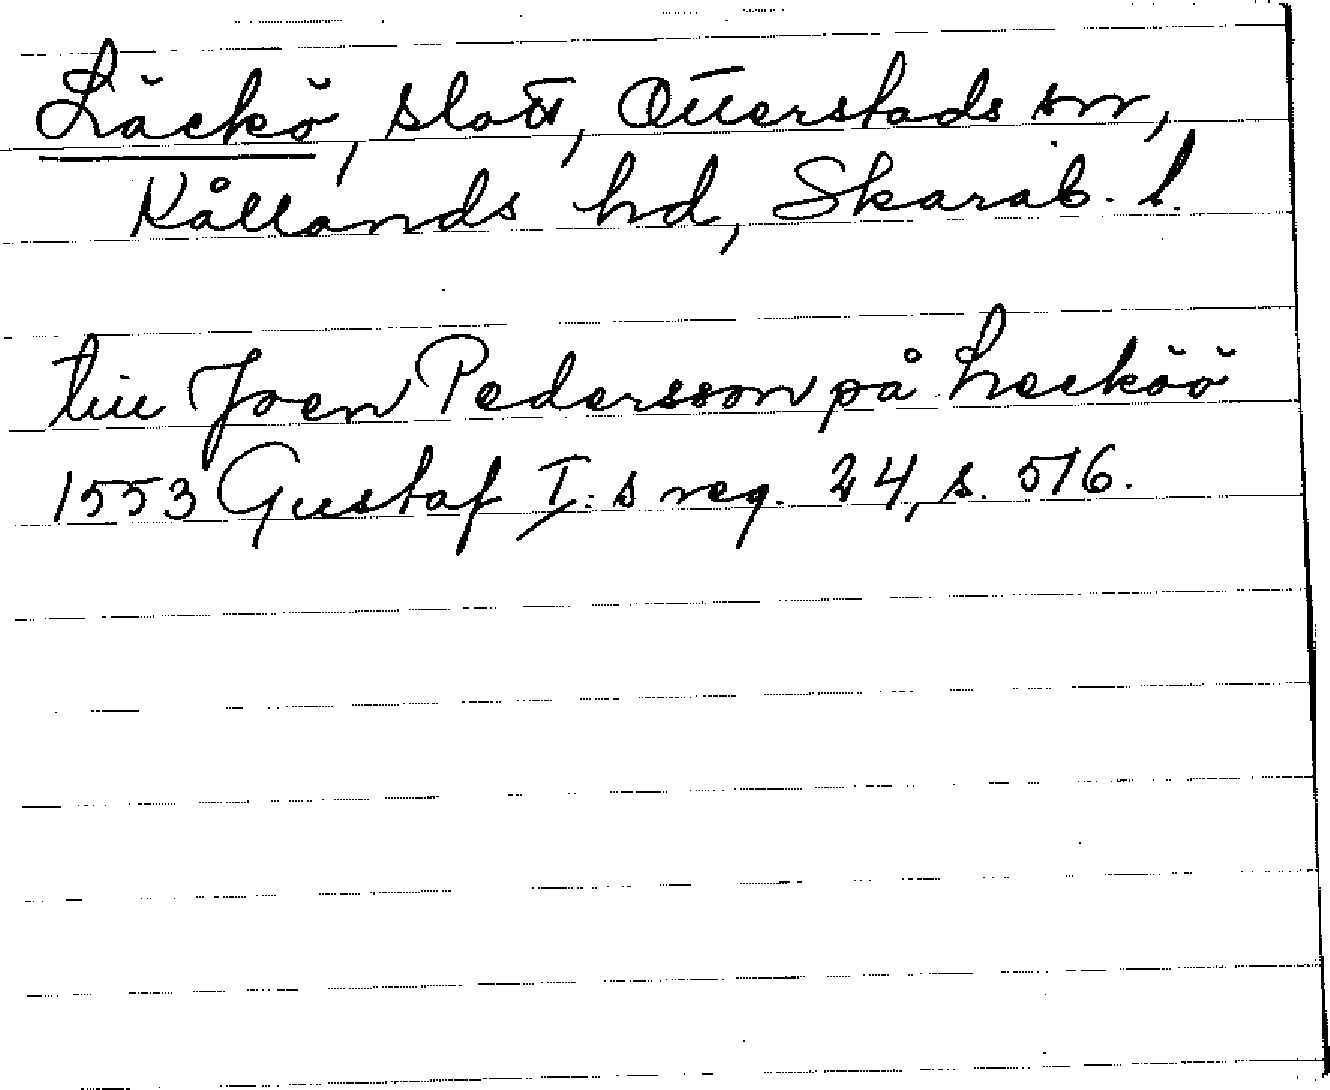 Läckö, slott, Otterstads sn,
Kållands hd, Skarab. l.
till Joen Pedersson på Lecköö
1553 Gustaf I:s reg. 24, s. 516.